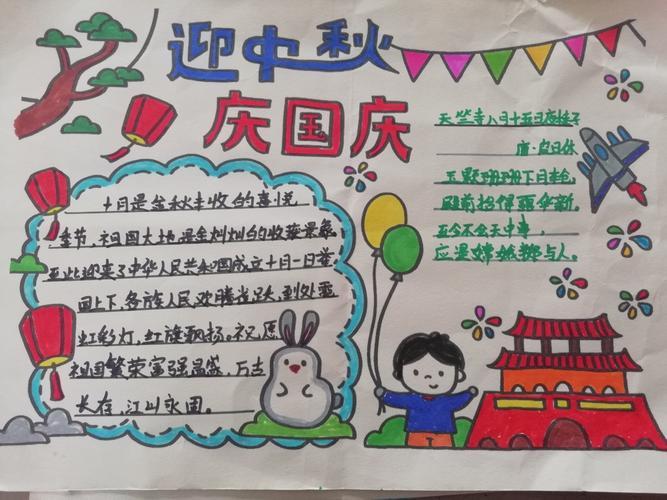 迎中秋
庆国庆
十月是金秋丰收的喜悦
季节,祖国大地是金灿灿的收获景象
至此迎来了中华人民共和国成立十月一日举
国上下,各族人民欢腾雀跃,到处霓
虹彩灯,红旗飘扬。祝愿
祖国繁荣富强昌盛,万古
长存,江山永固。
天竺寺八月十五日夜桂子
唐·皮日休
玉颗珊珊下月轮,
殿前拾得露华新。
至今不会天中事,
应是嫦娥掷与人。